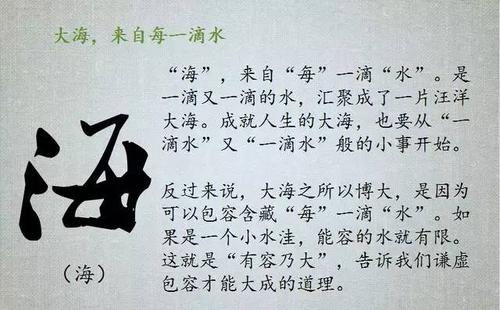 大海，来自每一滴水
“海”，来自“每”一滴“水”。是
一滴又一滴的水，汇聚成了一片汪洋
大海。成就人生的大海，也要从“一
滴水”又“一滴水”般的小事开始。
反过来说，大海之所以博大，是因为
可以包容含藏“每”一滴“水”。如
果是一个小水洼，能容的水就有限。
这就是“有容乃大”，告诉我们谦虚
包容才能大成的道理。
海
（海）